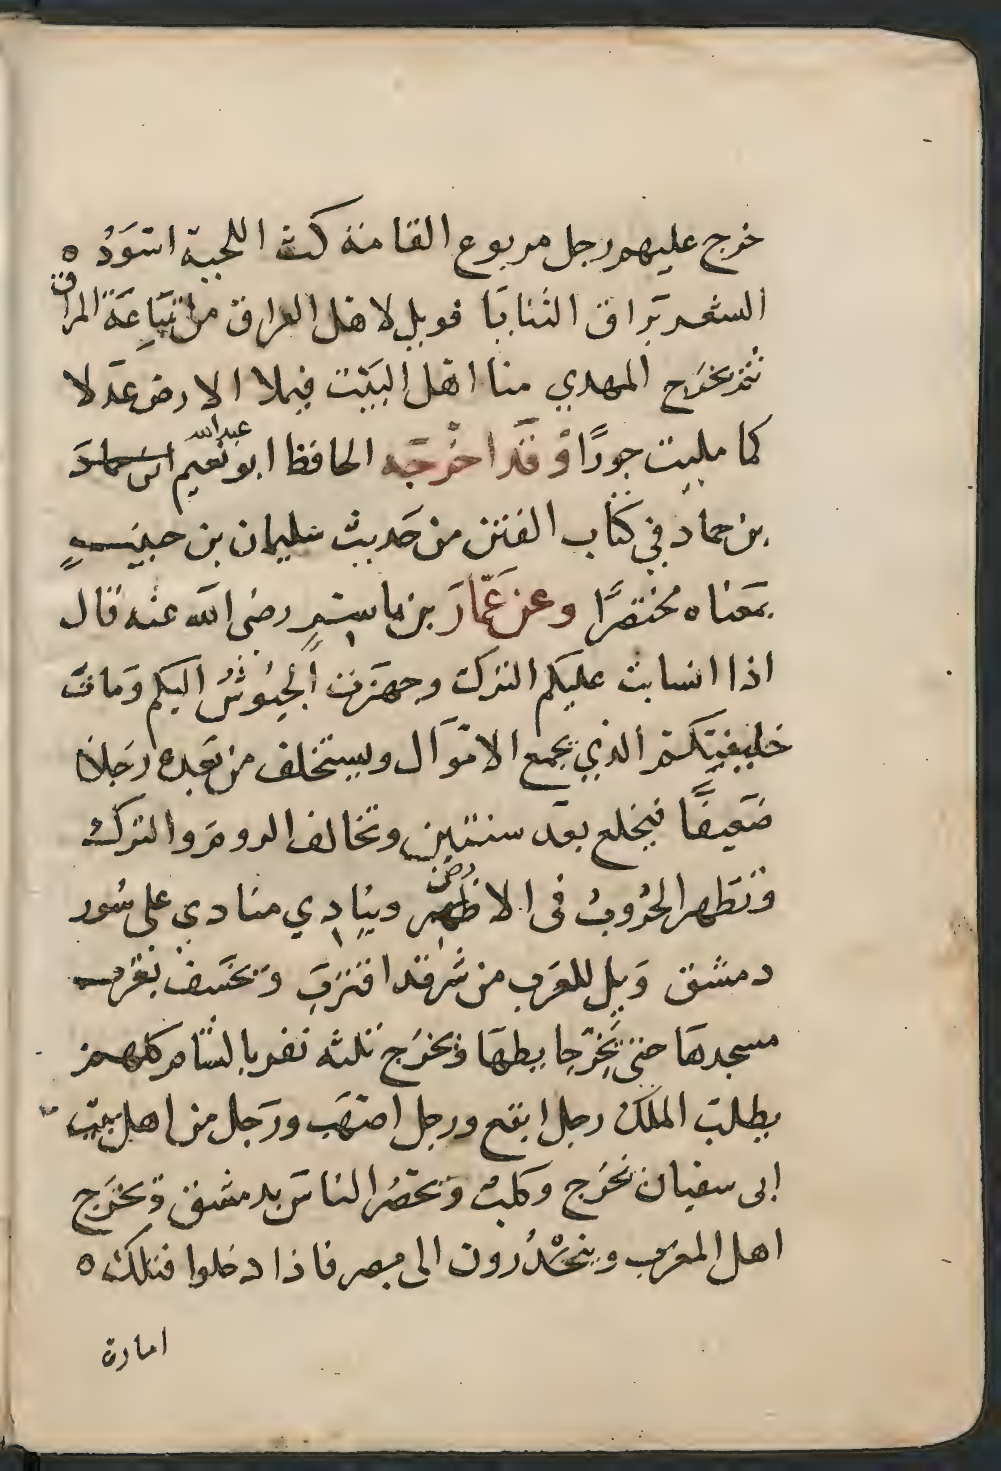 خرج عليهم رجل مربوع القامة كث اللحية اسود
الشعر براق الثنايا فويل لاهل العراق من تباعة المراق
ثم يخرج المهدي منا اهل البيت فيملا الارض عدلا
كما مليت جورًا وقد اخرجه الحافظ ابو عبدالله نعيم ابن حماد
بن حماد في كتاب الفتن من حديث سليمان بن حبيب
بمعناه مختصرًا وعن عمار بن ياسر رضى الله عنه قال
اذا انسابت عليكم الترك وجهزت الجيوش اليكم ومات
خليفتكم الذي يجمع الاموال ويستخلف من بعده رجلا
ضعيفًا فيخلع بعد سنتين وتخالف الروم والترك
وتظهر الحروب فى الارض وينادي منادي على سور
دمشق ويل للعرب من شر قد اقترب ويخسف بغرب
مسجدها حتى يخر حايطها ويخرج ثلثه نفر بالشام كلهم
يطلب الملك رجل ابقع ورجل اصهب ورجل من اهل بيت
ابى سفيان يخرج وكلب ويحصر الناس بدمشق ويخرج
اهل المغرب وينحدرون الى مصر فاذا دخلوا فتلك ه
امارة